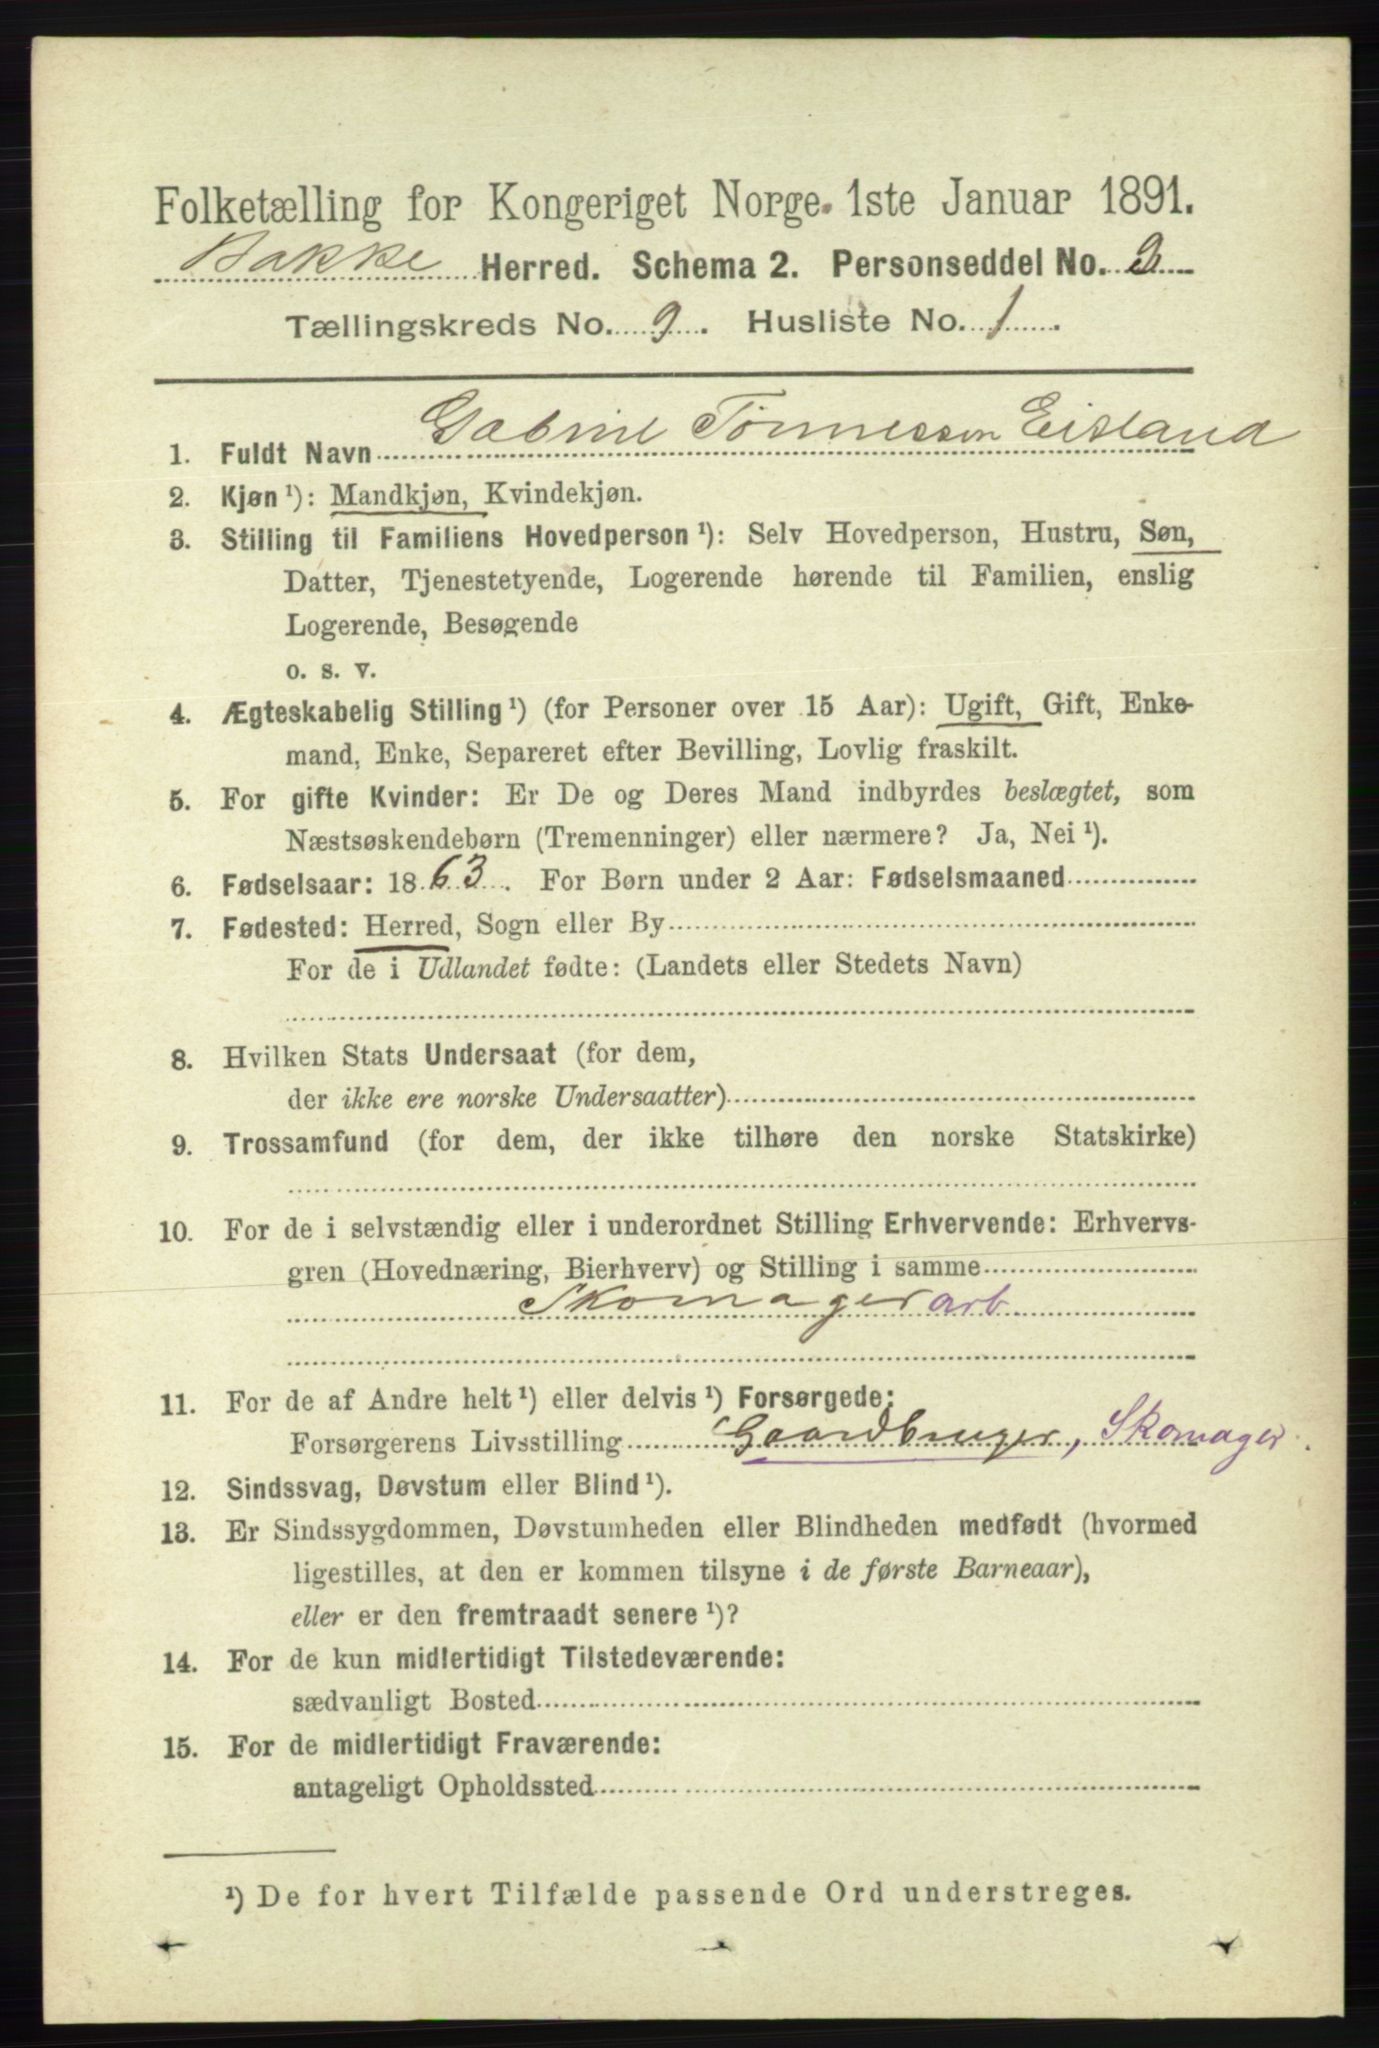 Folketælling for Kongeriget Norge 1ste Januar 1891.
Bakke Herred. Schema 2. Personseddel No. 3
Tællingskreds No. 9. Husliste No. 1
1. Fuldt Navn Gabriel Tønnessen Eisland
2. Kjøn ¹): Mandkjøn, Kvindekjøn.
3. Stilling til Familiens Hovedperson ¹): Selv Hovedperson, Hustru, Søn,
Datter, Tjenestetyende, Logerende hørende til Familien, enslig
Logerende, Besøgende
o. s. v.
4. Ægteskabelig Stilling ¹) (for Personer over 15 Aar): Ugift, Gift, Enke-
mand, Enke, Separeret efter Bevilling, Lovlig fraskilt.
5. For gifte Kvinder: Er De og Deres Mand indbyrdes beslægtet, som
Næstsøskendebørn (Tremenninger) eller nærmere? Ja, Nei ¹).
6. Fødselsaar: 1863. For Børn under 2 Aar: Fødselsmaaned
7. Fødested: Herred, Sogn eller By
For de i Udlandet fødte: (Landets eller Stedets Navn)
8. Hvilken Stats Undersaat (for dem,
der ikke ere norske Undersaatter)
9. Trossamfund (for dem, der ikke tilhøre den norske Statskirke)
10. For de i selvstændig eller i underordnet Stilling Erhvervende: Erhvervs-
gren (Hovednæring, Bierhverv) og Stilling i samme
Skomager arb
11. For de af Andre helt ¹) eller delvis ¹) Forsørgede:
Forsørgerens Livsstilling Gaardbruger, Skomager.
12. Sindssvag, Døvstum eller Blind ¹).
13. Er Sindssygdommen, Døvstumheden eller Blindheden medfødt (hvormed
ligestilles, at den er kommen tilsyne i de første Barneaar),
eller er den fremtraadt senere ¹)?
14. For de kun midlertidigt Tilstedeværende:
sædvanligt Bosted
15. For de midlertidigt Fraværende:
antageligt Opholdssted
¹) De for hvert Tilfælde passende Ord understreges.